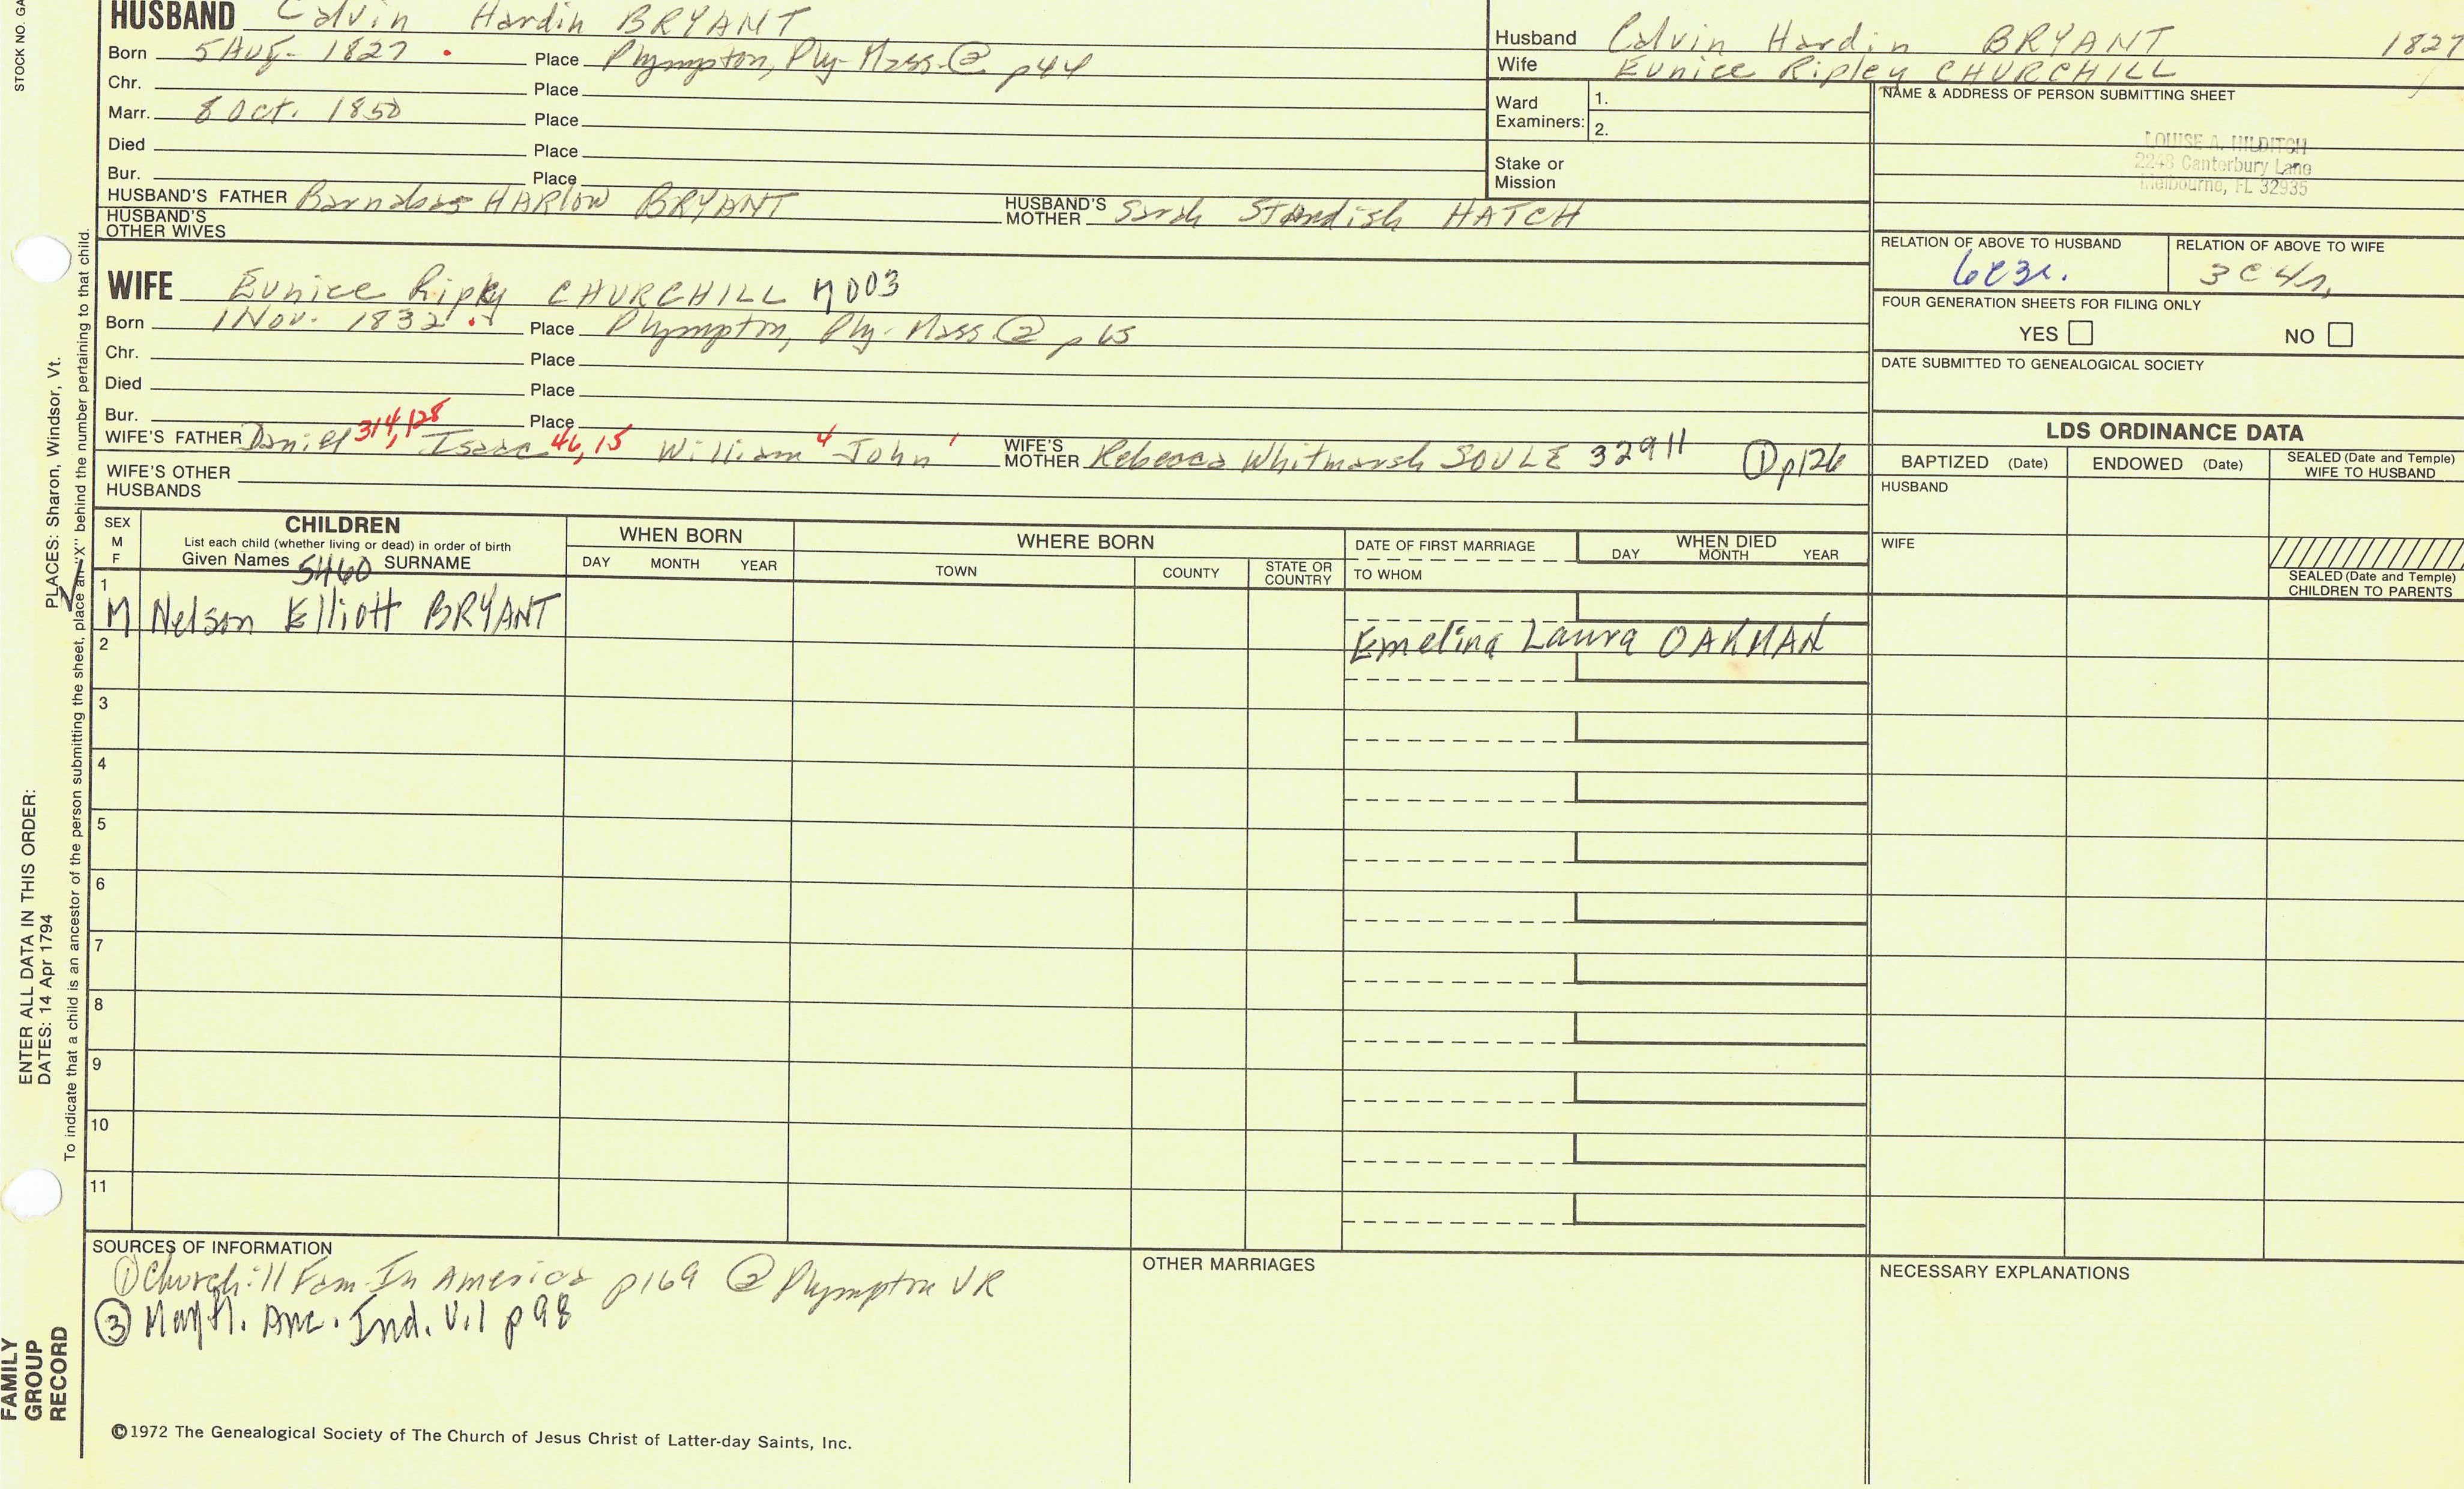 STOCK NO. GA
HUSBAND Calvin Hardin BRYANT
Born 5 Aug. 1827 . Place Plympton, Ply-Mass. ② p44
Chr. Place
Marr. 8 Oct. 1850 Place
Died Place
Bur. Place
HUSBAND'S FATHER Barnabas HARLOW BRYANT HUSBAND'S MOTHER Sarah Standish HATCH
HUSBAND'S OTHER WIVES
Husband Calvin Hardin BRYANT 1827
Wife Eunice Ripley CHURCHILL
Ward Examiners: 1.
2.
Stake or Mission
NAME & ADDRESS OF PERSON SUBMITTING SHEET
LOUISE A. HILDITCH
2248 Canterbury Lane
Melbourne, FL 32935
RELATION OF ABOVE TO HUSBAND
6C3r.
RELATION OF ABOVE TO WIFE
3C4r.
FOUR GENERATION SHEETS FOR FILING ONLY
YES NO
DATE SUBMITTED TO GENEALOGICAL SOCIETY
WIFE Eunice Ripley CHURCHILL M003
Born 1 Nov. 1832 . Place Plympton, Ply-Mass ② p 65
Chr. Place
Died Place
Bur. Place
WIFE'S FATHER Daniel 314,128 Isaac 46,15 William 4 John 1 WIFE'S MOTHER Rebecca Whitmarsh SOULE 32911 ① p126
WIFE'S OTHER HUSBANDS
LDS ORDINANCE DATA
BAPTIZED (Date) ENDOWED (Date) SEALED (Date and Temple) WIFE TO HUSBAND
HUSBAND
WIFE
SEALED (Date and Temple) CHILDREN TO PARENTS
SEX M F
CHILDREN
List each child (whether living or dead) in order of birth
Given Names 5460 SURNAME
WHEN BORN
DAY MONTH YEAR
WHERE BORN
TOWN COUNTY STATE OR COUNTRY
DATE OF FIRST MARRIAGE
TO WHOM
WHEN DIED
DAY MONTH YEAR
1 M Nelson Elliott BRYANT Emelina Laura OAKMAN
2
3
4
5
6
7
8
9
10
11
SOURCES OF INFORMATION
① Churchill Fam-In America p169 ② Plympton VR
③ Mayfl. Anc. Ind. V.1 p98
OTHER MARRIAGES
NECESSARY EXPLANATIONS
©1972 The Genealogical Society of The Church of Jesus Christ of Latter-day Saints, Inc.
PLACES: Sharon, Windsor, Vt.
ENTER ALL DATA IN THIS ORDER:
DATES: 14 Apr 1794
To indicate that a child is an ancestor of the person submitting the sheet, place an "X" behind the number pertaining to that child.
FAMILY
GROUP
RECORD